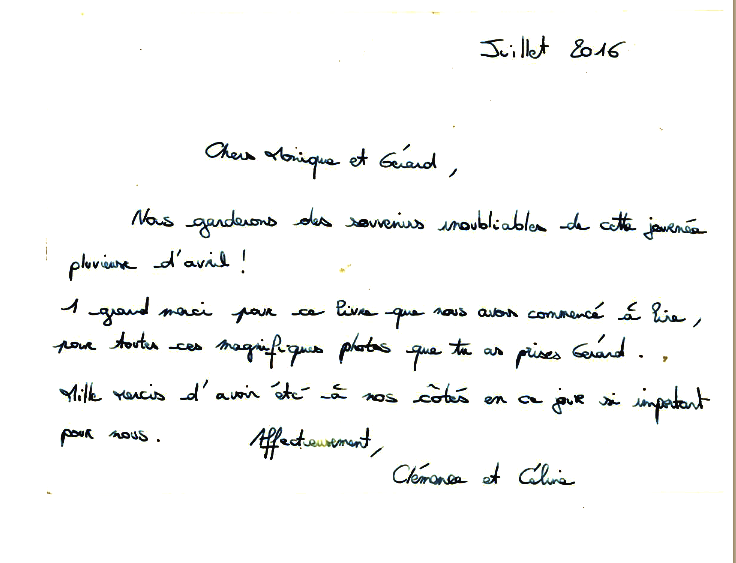 Juillet 2016
Chers Monique et Gérard,
Nous garderons des souvenirs inoubliables de cette journée
pluvieuse d'avril !
1 grand merci pour ce livre que nous avons commencé à lire,
pour toutes ces magnifiques photos que tu as prises Gérard.
Mille mercis d'avoir été à nos côtés en ce jour si important
pour nous. Affectueusement,
Clémence et Céline